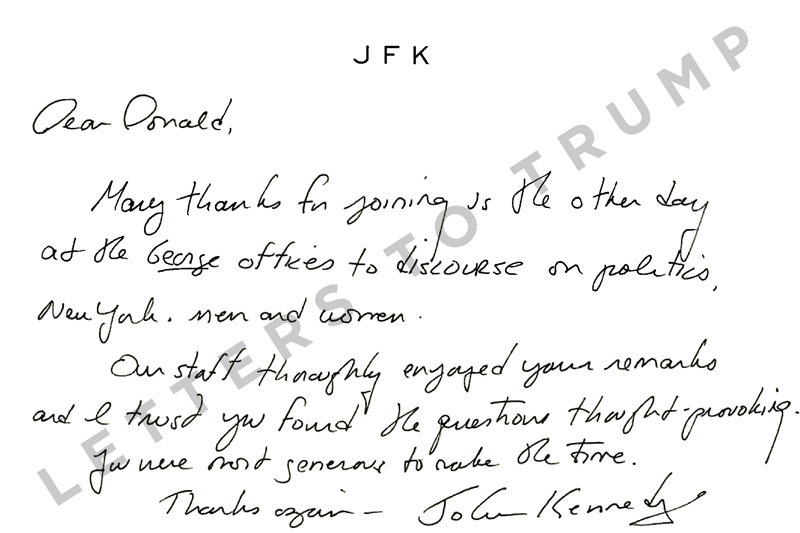 JFK
Dear Donald,
Many thanks for joining us the other day
at the George offices to discourse on politics,
New York. men and women.
Our staff thoroughly enjoyed your remarks
and I trust you found the questions thought-provoking.
You were most generous to make the time.
Thanks again - John Kennedy
LETTERS TO TRUMP